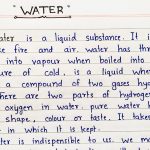 "WATER"
ater is a liquid substance. It i
ke fire and air. water has thr
into vapour when boiled into
ure of cold. is a liquid when
a compound of two gases hyd
here are two parts of hydrogen
oxygen in water. pure water
shape, colour or taste. It takes
in which it is kept.
water is indispensible to us. we m